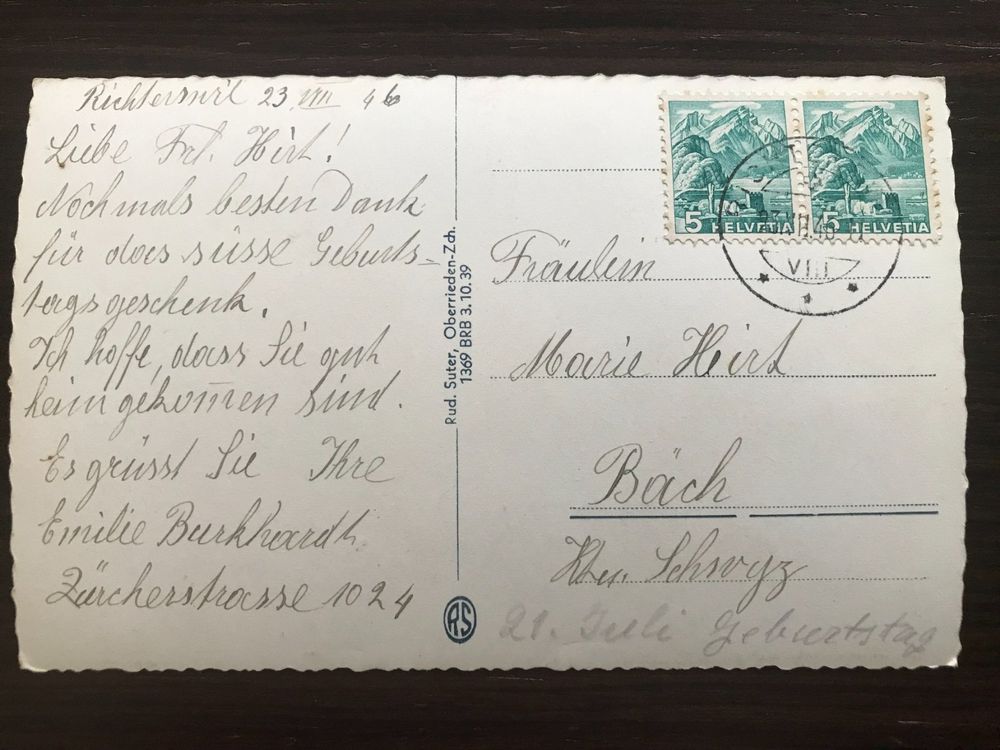 Richterswil 23. VIII 46
Liebe Frl. Hirt!
Nochmals besten Dank
für das süsse Geburts-
tagsgeschenk.
Ich hoffe, dass Sie gut
heimgekom̅en sind.
Es grüsst Sie Ihre
Emilie Burkhardt
Zürcherstrasse 1024
Rud. Suter, Oberrieden-Zch.
1369 BRB 3.10.39
RS
5 HELVETIA
5 HELVETIA
VIII
Fräulein
Marie Hirt
Bäch
Kt. Schwyz
21. Juli Geburtstag